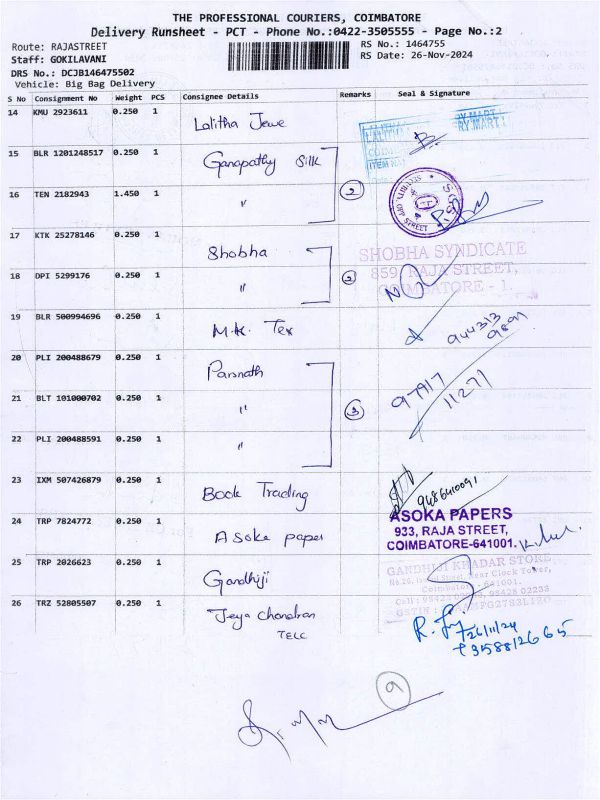 THE PROFESSIONAL COURIERS, COIMBATORE
Delivery Runsheet - PCT - Phone No.:0422-3505555 - Page No.:2
Route: RAJASTREET
RS No.: 1464755
Staff: GOKILAVANI
RS Date: 26-Nov-2024
DRS No.: DCJB146475502
Vehicle: Big Bag Delivery
S No Consignment No Weight PCS Consignee Details Remarks Seal & Signature
14 KMU 2923611 0.250 1 Lalitha Jewe
15 BLR 1201248517 0.250 1 Ganapathy Silk
16 TEN 2182943 1.450 1 "
2
STREET
17 KTK 25278146 0.250 1 Shobha
18 DPI 5299176 0.250 1 "
2
SHOBHA SYNDICATE
859, RAJA STREET,
COIMBATORE - 1.
19 BLR 500994696 0.250 1 M.K. Tex
944313
20 PLI 200488679 0.250 1 Parsnath
21 BLT 101000702 0.250 1 "
3
97917
11271
22 PLI 200488591 0.250 1 "
23 IXM 507426879 0.250 1 Book Trading
9486410091
24 TRP 7824772 0.250 1 Asoke paper
ASOKA PAPERS
933, RAJA STREET,
COIMBATORE-641001.
25 TRP 2026623 0.250 1 Gandhiji
GANDHIJI KHADAR STORE
Near Clock Tower,
Coimbatore - 641001.
26 TRZ 52805507 0.250 1 Jeya chandran
TELC
26/11/24
9